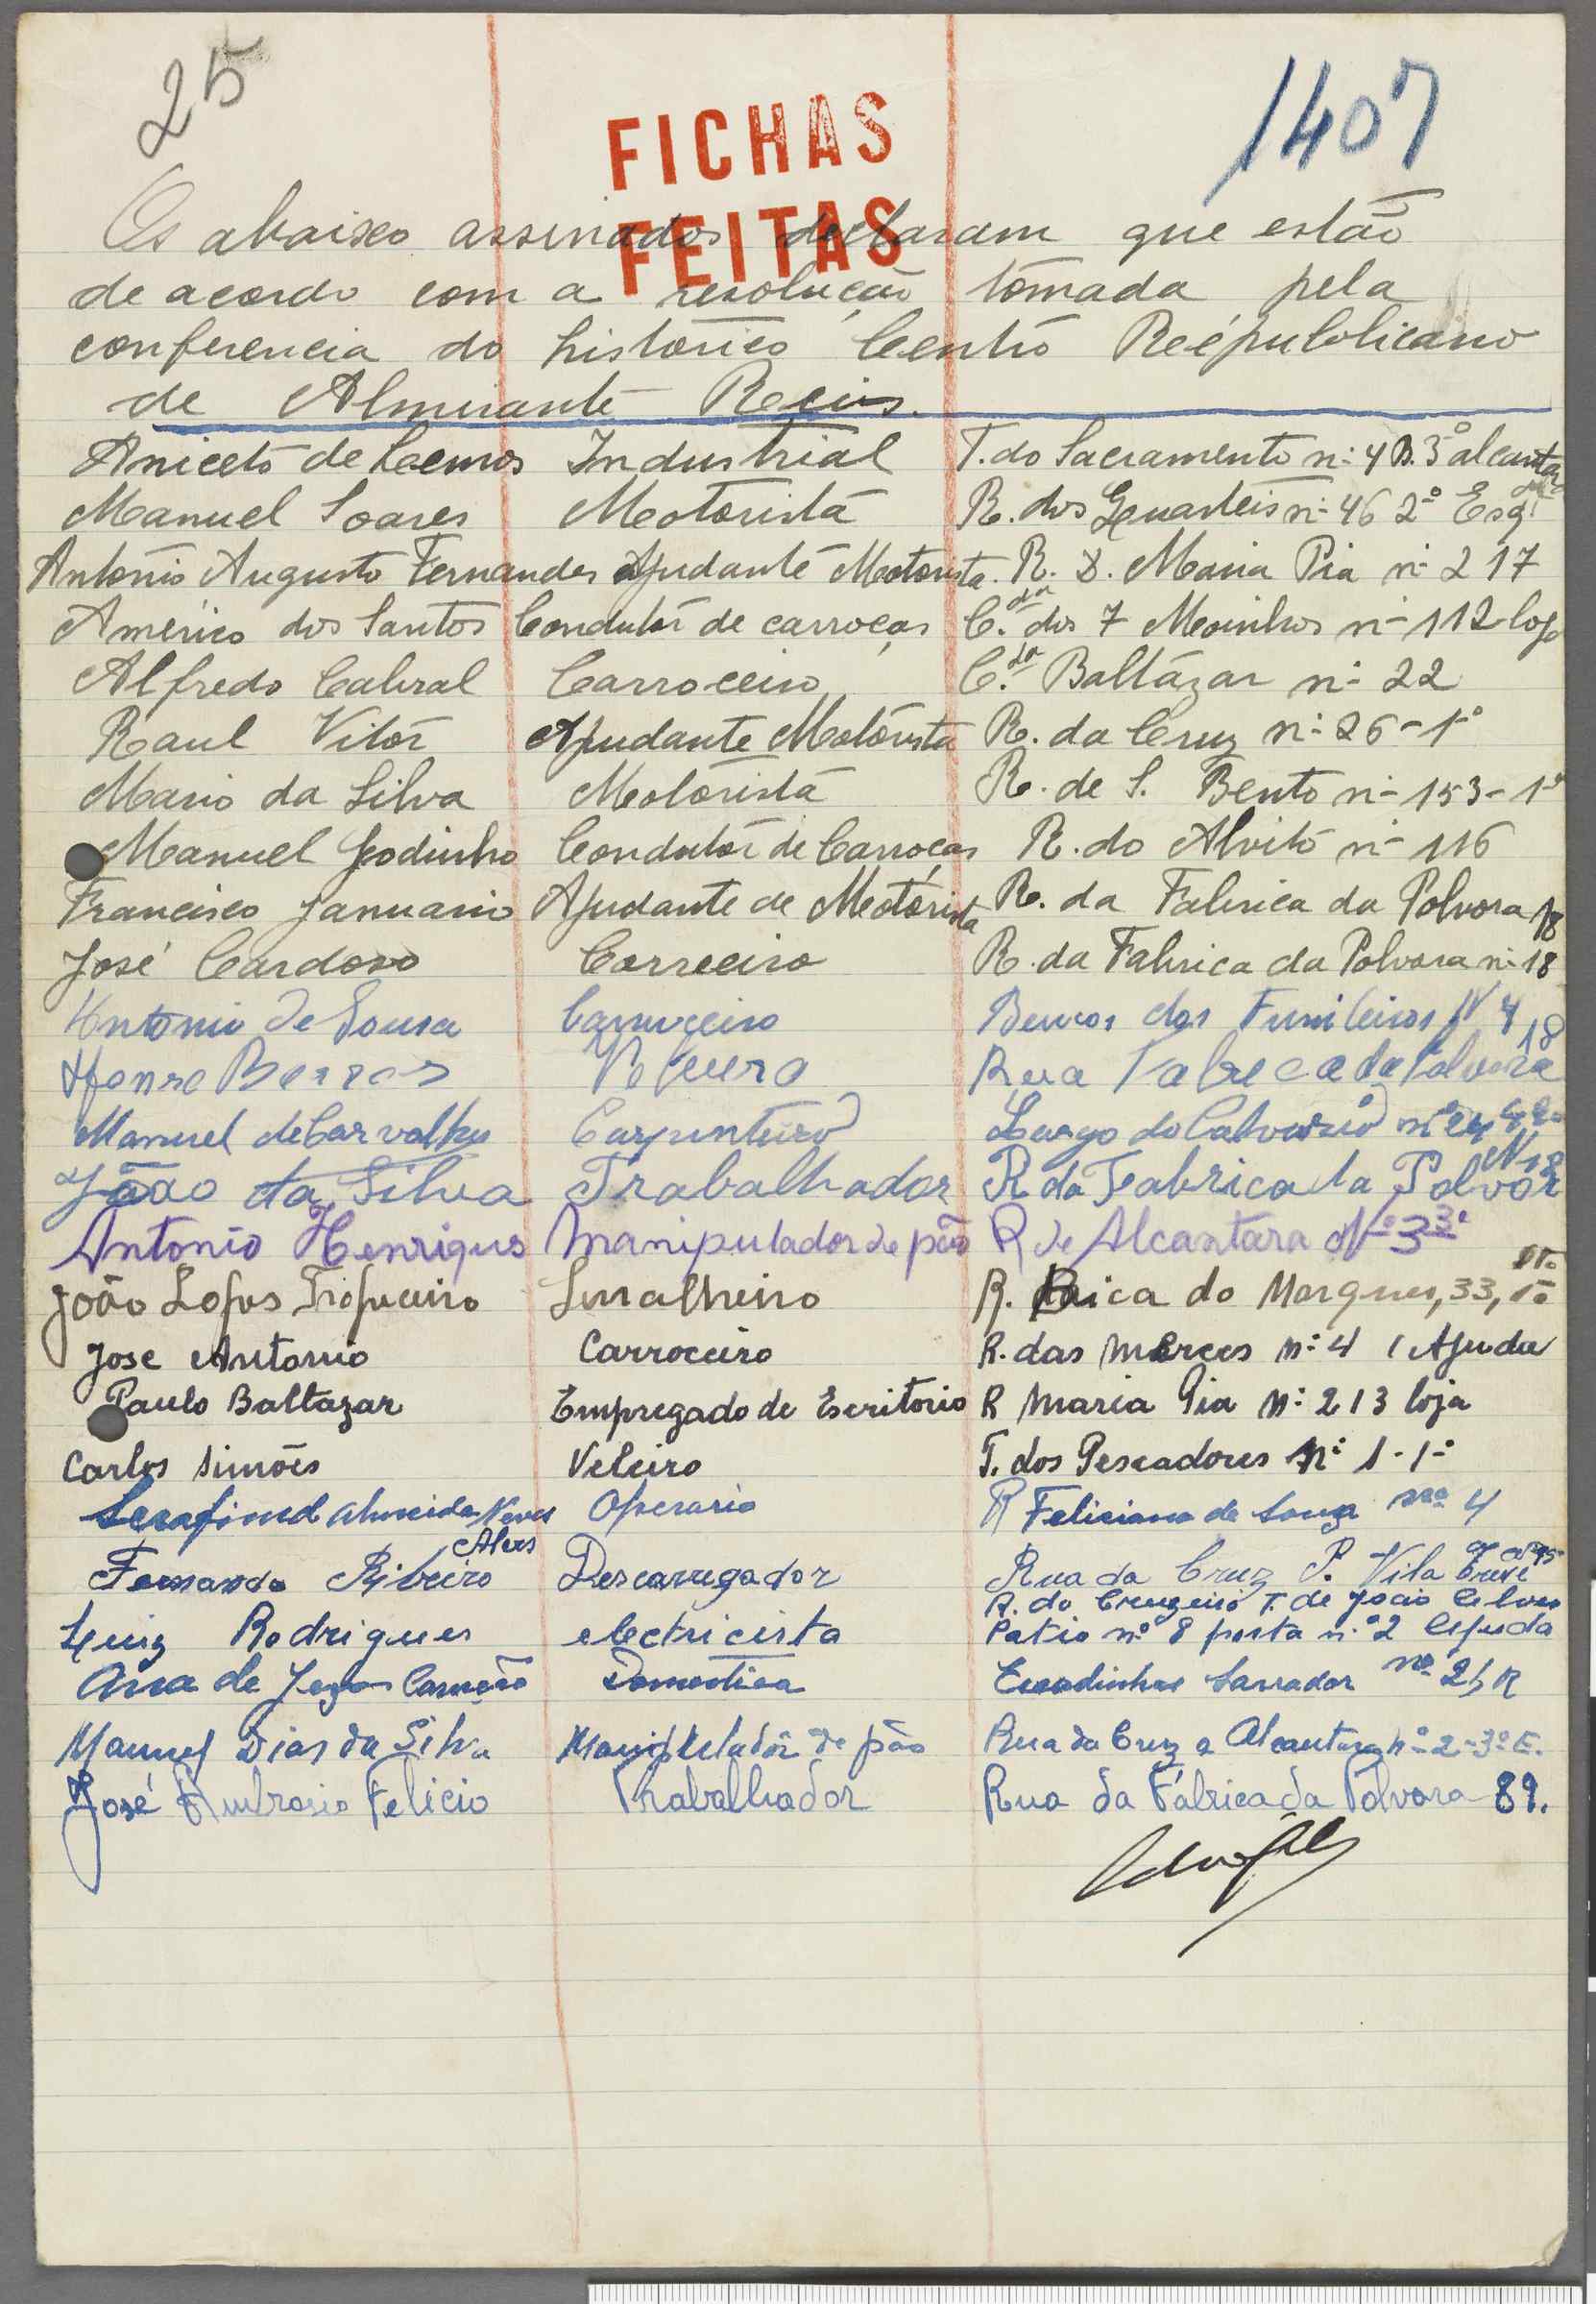 25
1407
FICHAS
FEITAS
Os abaixo assinados declaram que estão
de acordo com a resolução tomada pela
conferencia do historico Centro Républicano
de Almirante Reis.
Aniceto de Lemos Industrial T. do Sacramento nº 4 B. 3º alcantara
Manuel Soares Motorista R. dos Quarteis nº 46 2º Esq.
António Augusto Fernandes Ajudante Motorista. R. D. Maria Pia nº 217
Américo dos Santos Condutor de carroças C.da dos 7 Moinhos nº 112 loja
Alfredo Cabral Carroceiro C.da Baltázar nº 22
Raul Vitór Ajudante Motorista R. da Cruz nº 26-1º
Mario da Silva Motorista R. de S. Bento nº 153-1º
Manuel Godinho Condutor de Carroças R. do Alvito nº 116
Francisco Januario Ajudante de Motorista R. da Fabrica da Polvora 18
José Cardoso Correeiro R. da Fabrica da Polvora nº 18
Antonio de Sousa Carroceiro Beucos dos Funileiros Nº 4
Afonso Barros Rua Fabreca da Polvora 18
Manuel de Carvalho Carpinteiro Largo do Calvario nº 24
João da Silva Trabalhador R da Fabrica da Polvor N18
Antonio Henriques Manipulador de pão R de Alcantara Nº 33º
João Lopes Serralheiro R. Bica do Marques, 33,
Jose Antonio Carroceiro R. das Merces nº 4 (Ajuda
Paulo Baltazar Empregado de Escritorio R Maria Pia nº 213 loja
Carlos Simões Veleiro T. dos Pescadores nº 1-1º
Serafim d Almeida Neves Operario R Feliciano de Souza nº 4
Alves
Fernando Ribeiro Descarregador Rua da Cruz P. Vila
R. do Cruzeiro T. de João Alves
Luiz Rodrigues electricista Patio nº 8 porta nº 2 Ajuda
Ana de Jezos Domestica
Manuel Dias da Silva Manipulador de pão Rua da Cruz a Alcantara nº 2-3º E.
José Ambrosio Felicio Trabalhador Rua da Fábrica da Pólvora 89.